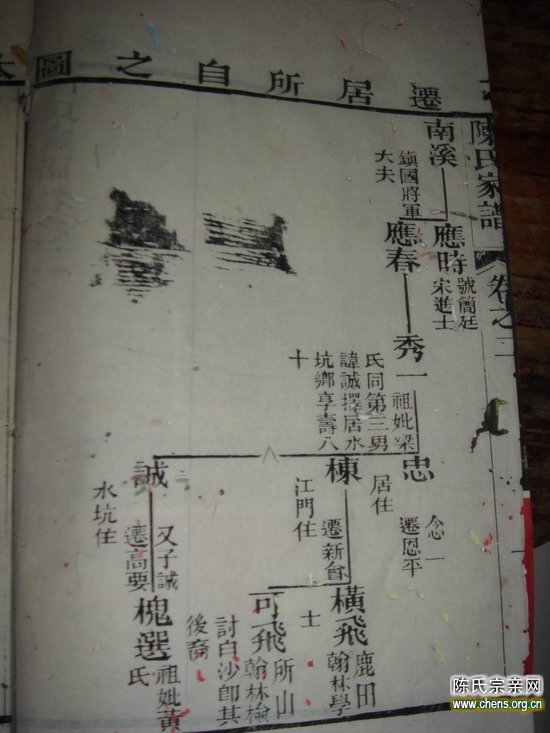 陳氏家譜
卷之二
遷居所自之圖
南溪
鎮國將軍
大夫
應時
號簡廷
宋進士
應春
秀一
祖妣梁
氏同第三男
諱誠擇居水
坑鄉享壽八
十
忠
念一
遷恩平
居住
棟
遷新會
江門住
橫飛
鹿田
翰林學
士
可飛
所山
翰林檢
討白沙即其
後裔
誠
又子誠
遷高要
水坑住
槐選
祖妣黃
氏
陈氏宗亲网
www.chens.org.cn